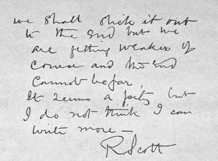 we shall stick it out
to the end but we
are getting weaker of
course and the end
cannot be far.
It seems a pity but
I do not think I can
write more –
R. Scott